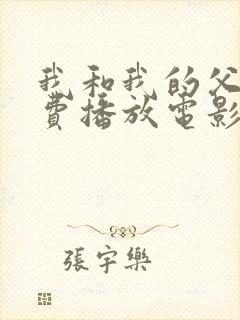 我和我的父
費播放電影
張宇樂